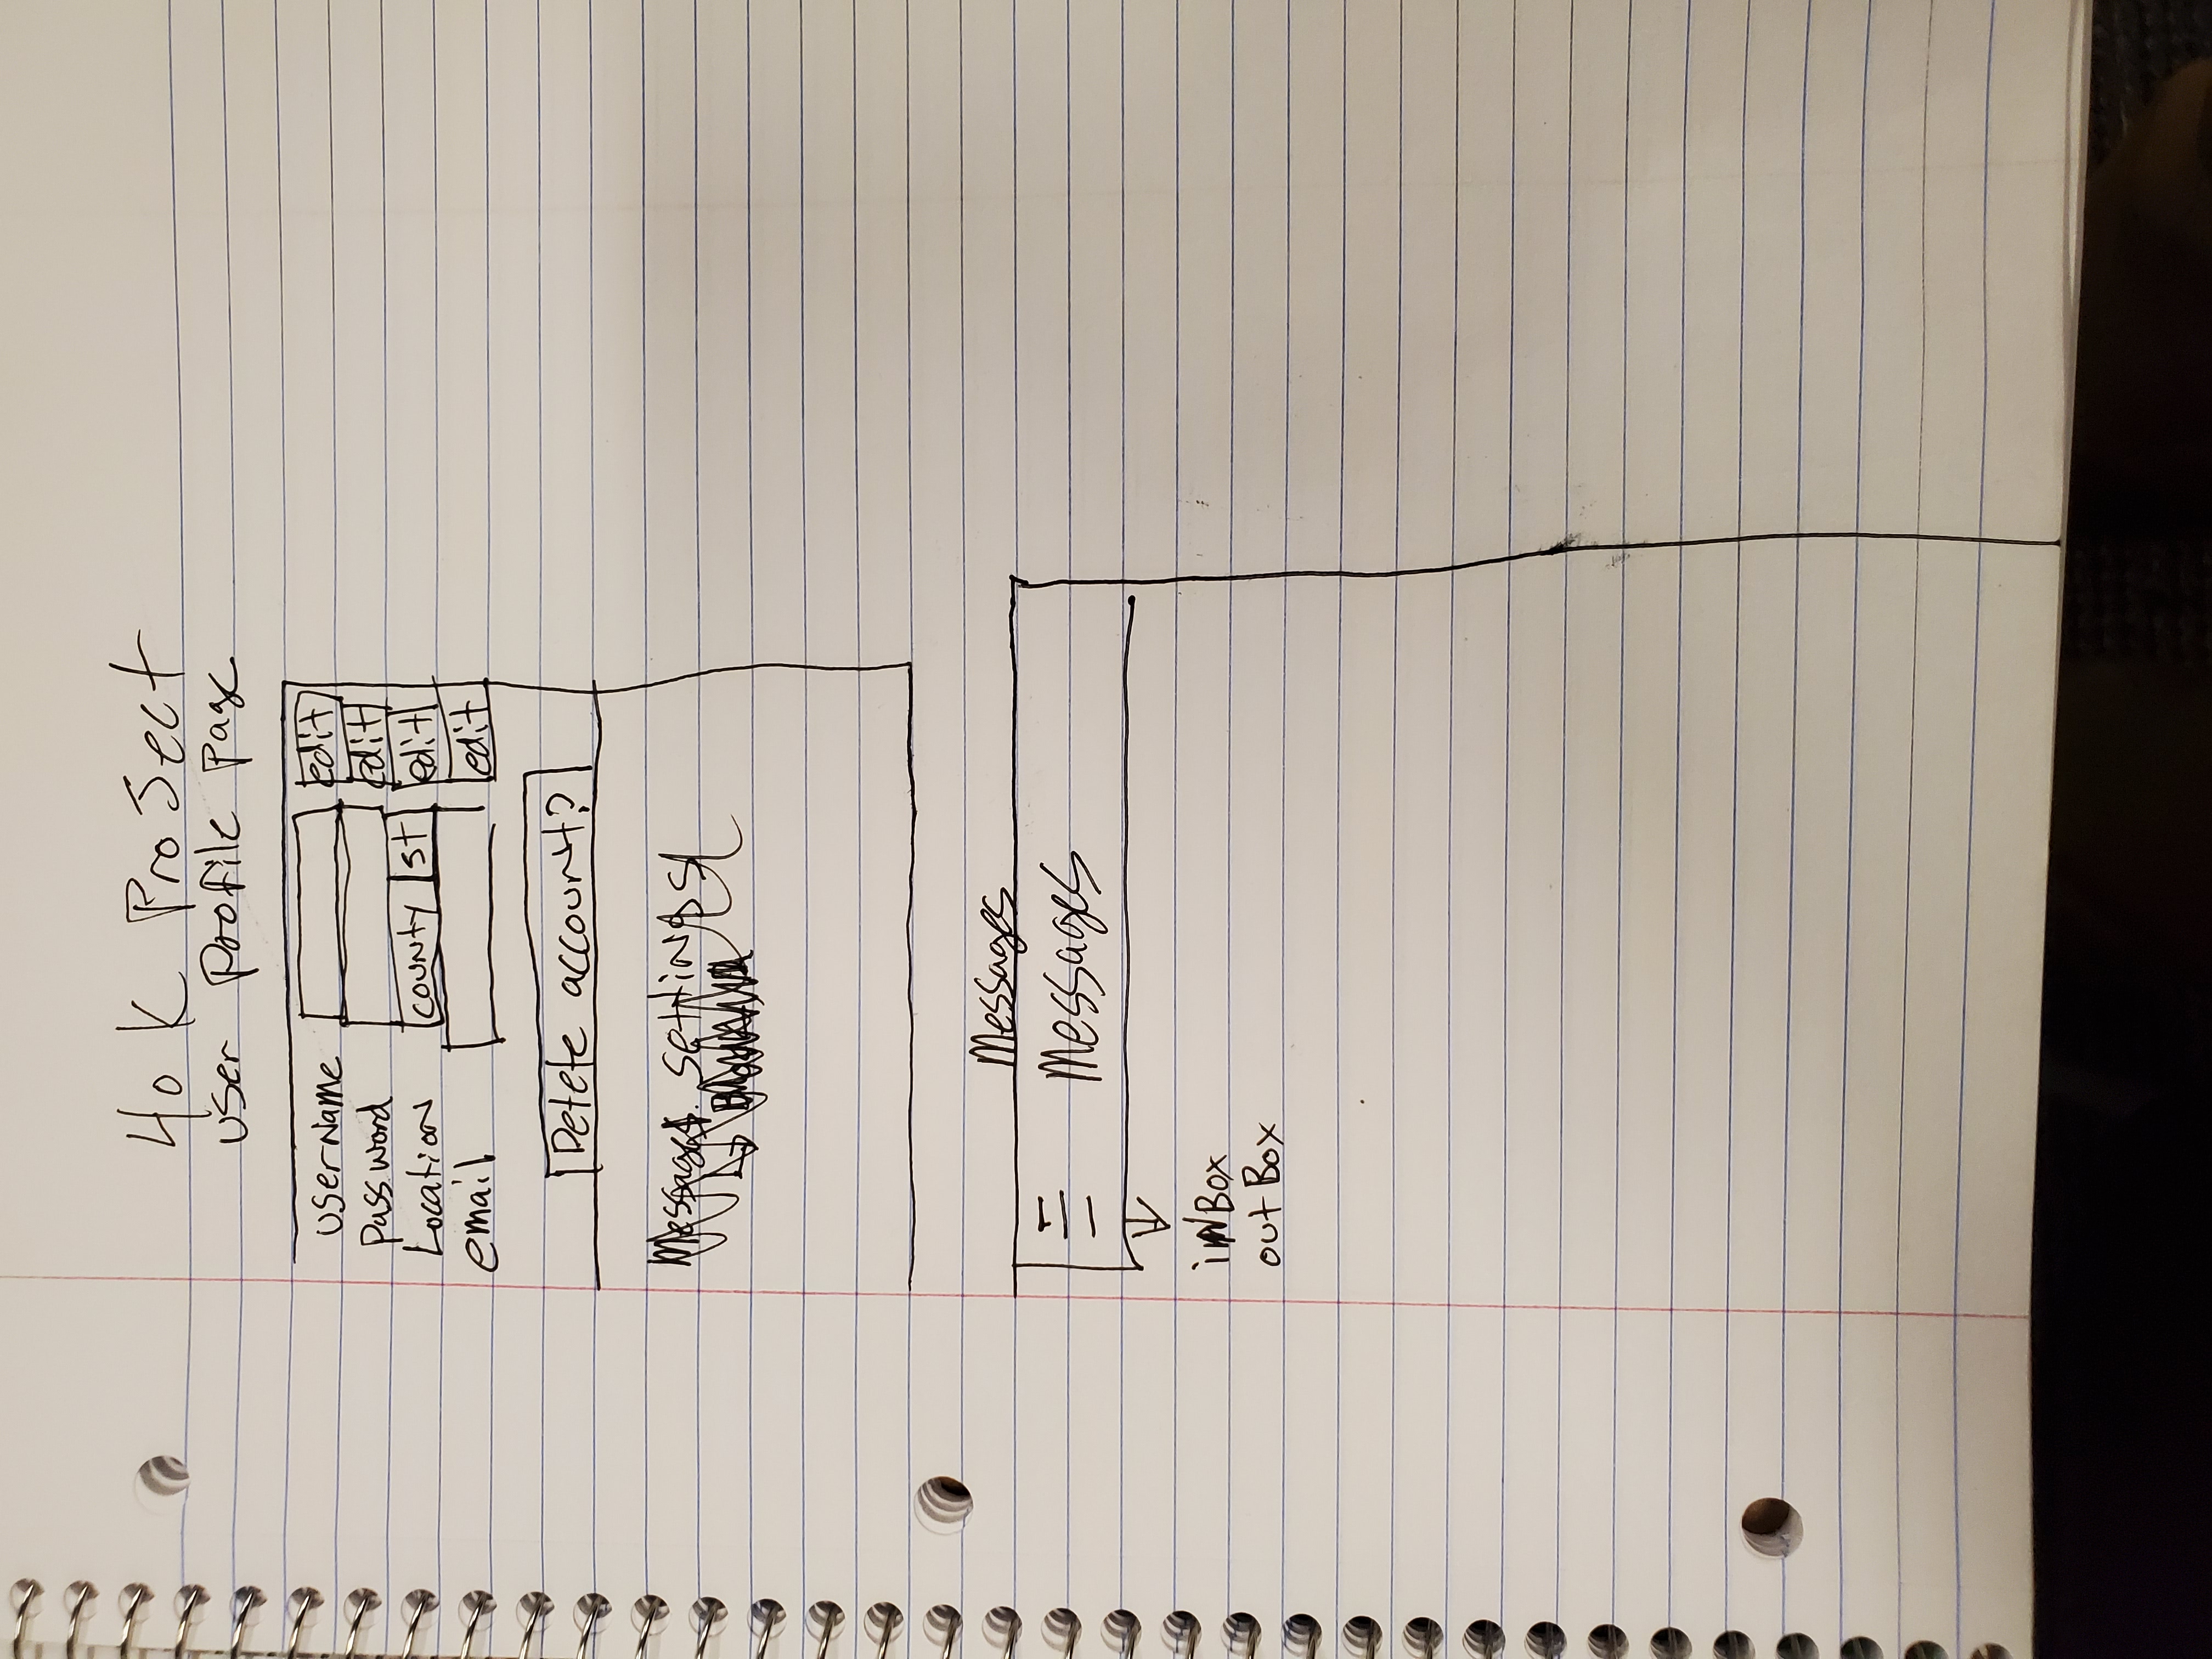 40 K Project
user Profile Page
username edit
Password edit
Location county st edit
email edit
Delete account?
Messages settings
Messages
Messages
inBox
out Box